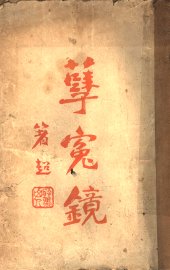 孽冤鏡
箸超